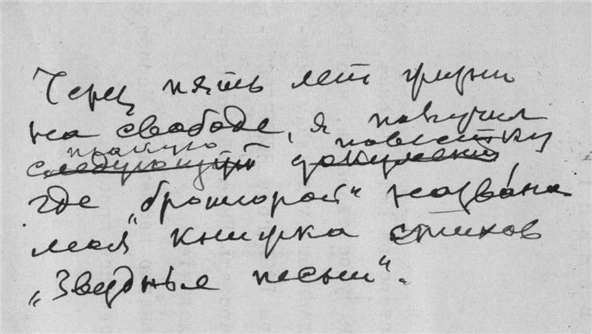 Через пять лет жизни
на свободе, я получил
такую повестку
следующий документ,
где „брошюрой“ названа
моя книжка стихов
„Звездные песни“.